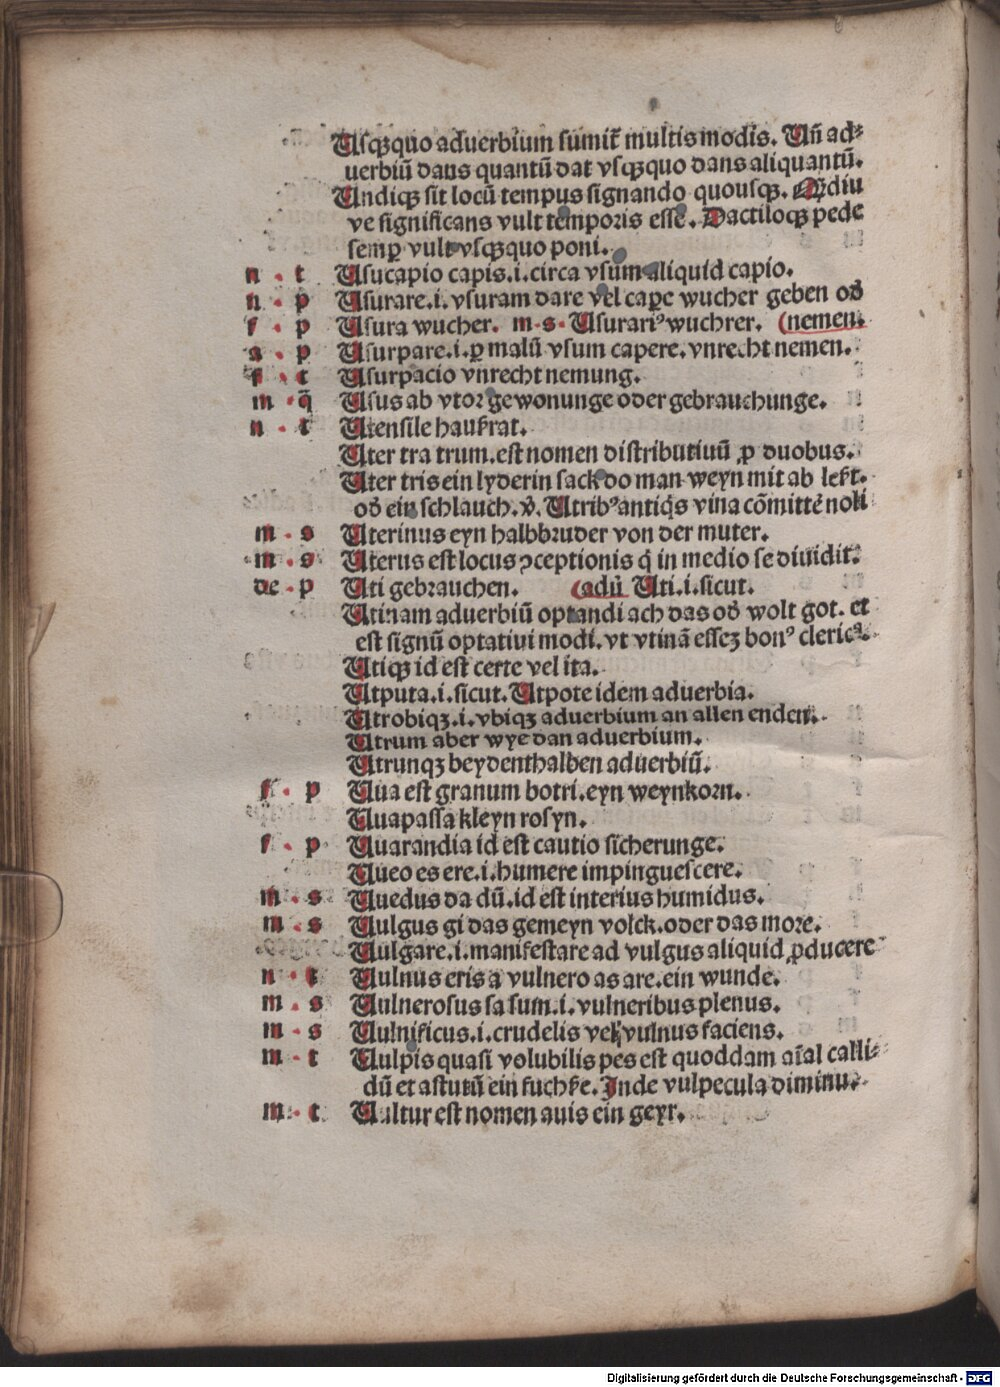 Vsqꝫquo aduerbium sumit̄ multis modis. Vñ ad⸗
uerbiū dans quantū dat vsqꝫquo dans aliquantū.
Vndiqꝫ sit locū tempus signando quousqꝫ. Qȝdiu
ve significans vult temporis esse. Dactiloqꝫ pede
semꝑ vult vsqꝫquo poni.
n . t Vsucapio capis.i.circa vsum aliquid capio.
n . p Vsurare.i.vsuram dare vel caꝑe wucher geben od̕
f . p Vsura wucher. m.s. Vsurariꝰ wuchrer. (nemen.
a . p Vsurpare.i.ꝑ malū vsum capere.vnrecht nemen.
f . t Vsurpacio vnrecht nemung.
m . q̄ Vsus ab vtor gewonunge oder gebrauchunge.
n . t Vtensile haußrat.
Vter tra trum.est nomen distributiuū ꝓ duobus.
Vter tris ein lyderin sack do man weyn mit ab leßt.
od̕ ein schlauch.v̕. Vtribꝰ antiq̄s vina cōmittē noli
m . s Vterinus eyn halbbruder von der muter.
m . s Vterus est locus ↄceptionis q̄ in medio se diuidit.
de . p Vti gebrauchen. (adū Vti.i.sicut.
Vtinam aduerbiū optandi ach das od̕ wolt got. et
est signū optatiui modi.vt vtinā esseȝ bonꝰ clericꝰ.
Vtiqꝫ id est certe vel ita.
Vtputa.i.sicut. Vtpote idem aduerbia.
Vtrobiqꝫ.i.vbiqꝫ aduerbium an allen enden.
Vtrum aber wye dan aduerbium.
Vtrunqꝫ beydenthalben aduerbiū.
f . p Vua est granum botri.eyn weynkorn.
Vuapassa kleyn rosyn.
f . p Vuarandia id est cautio sicherunge.
Vueo es ere.i.humere impinguescere.
m . s Vuedus da dū.id est interius humidus.
m . s Vulgus gi das gemeyn volck.oder das more.
Vulgare.i.manifestare ad vulgus aliquid ꝓducere
n . t Vulnus eris a vulnero as are.ein wunde.
m . s Vulnerosus sa sum.i.vulneribus plenus.
m . s Vulnificus.i.crudelis vel vulnus faciens.
m . t Vulpis quasi volubilis pes est quoddam aīal calli⸗
dū et astutū ein fuchße. Inde vulpecula diminu.
m . t Vultur est nomen auis ein geyr.
Digitalisierung gefördert durch die Deutsche Forschungsgemeinschaft - DFG